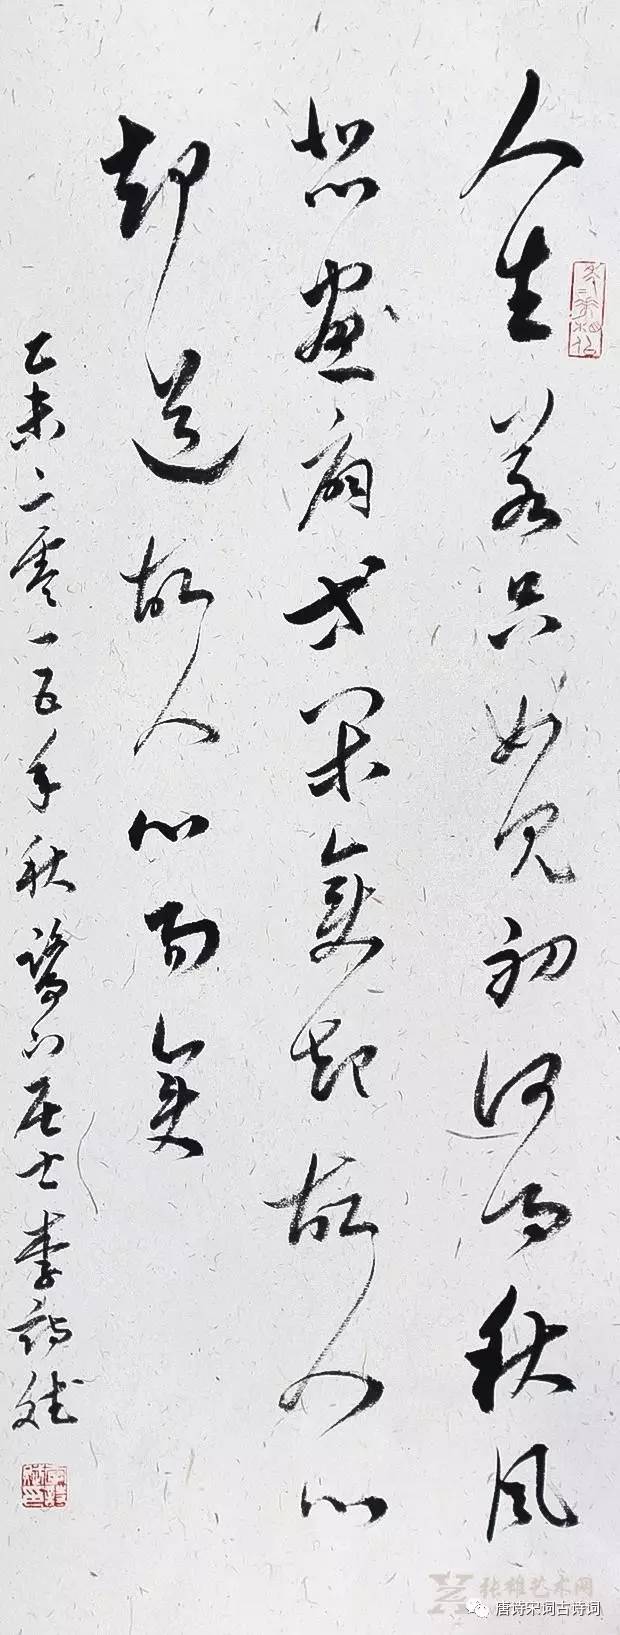 人生若只如见初何事秋风
悲画扇等闲变却故人心
却道故人心易变
乙未二零一五年秋鹭门居士李诗斌
张雄艺术网
唐诗宋词古诗词